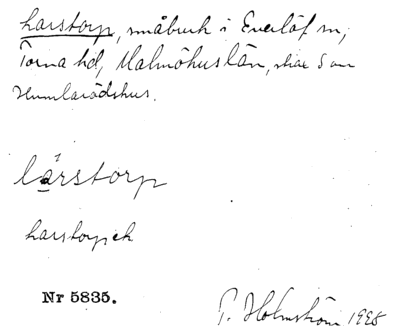 Larstorp, småbruk i Everlöf sn,
Torna hd, Malmöhus län, strax S om
Humlarödshus.
lárstorp
Larstorp
Nr 5835.
P. Holmström 1995